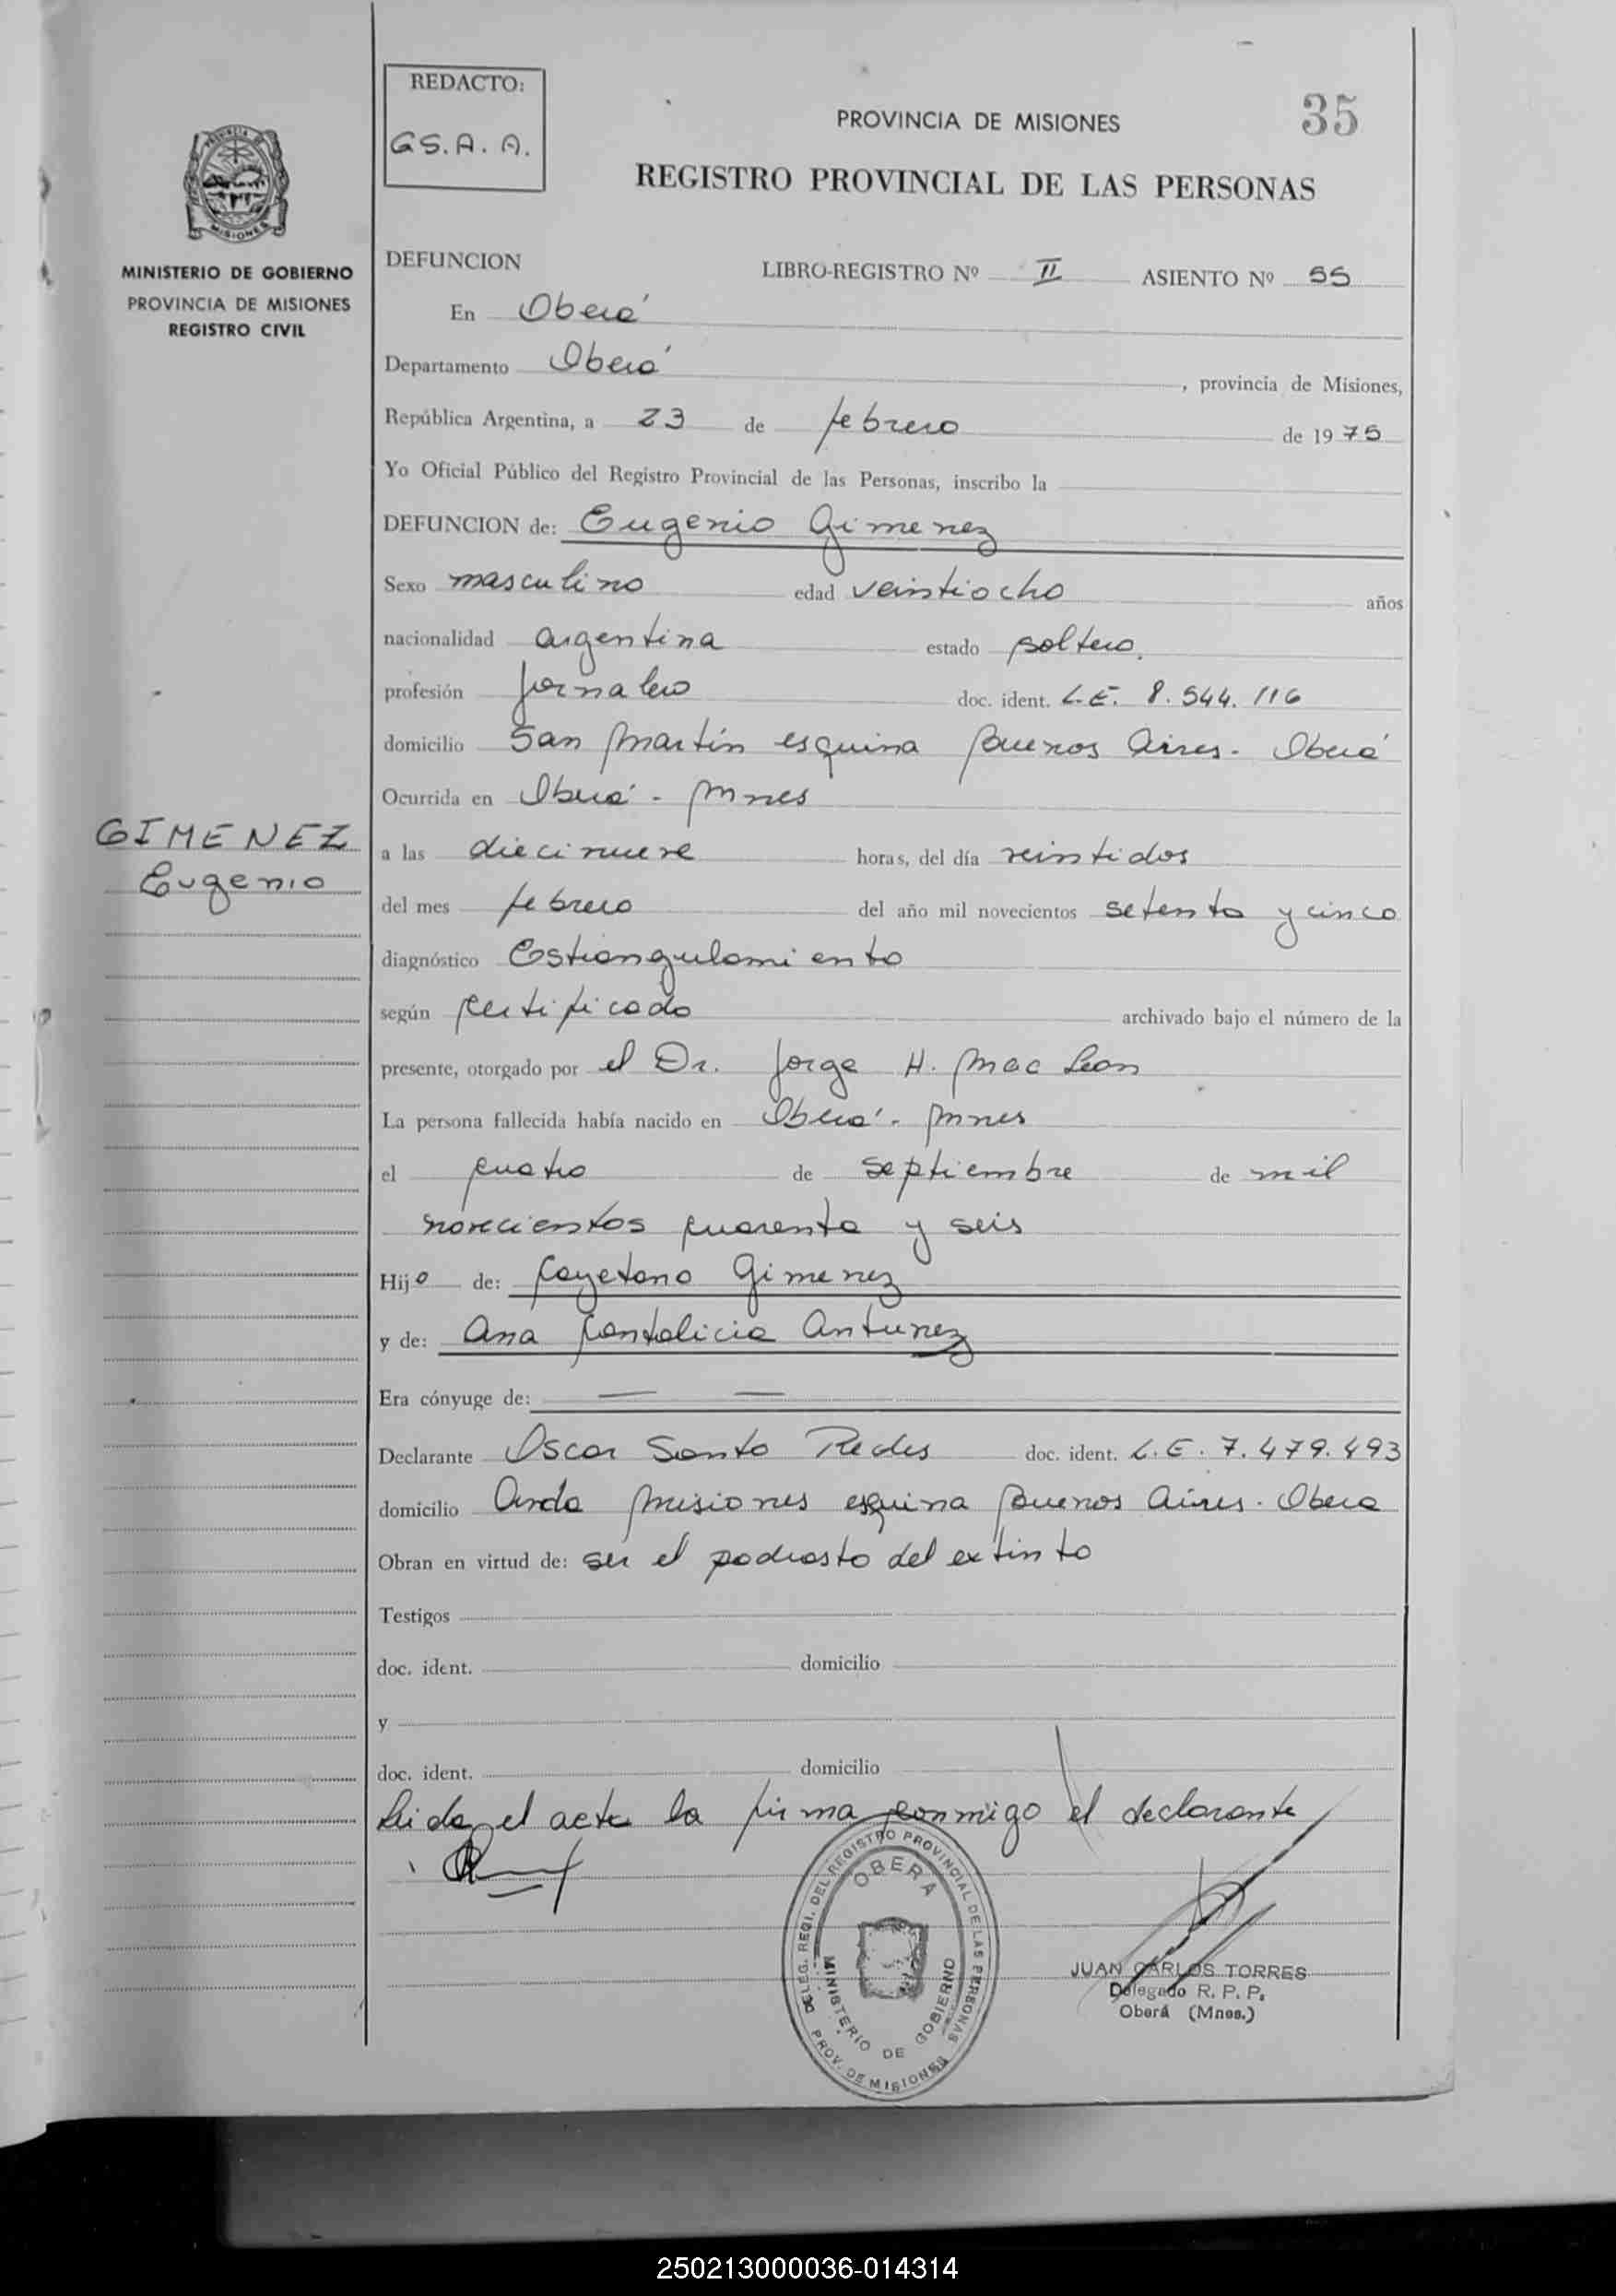 REDACTO:
GS. A. A.
35
PROVINCIA DE MISIONES
REGISTRO PROVINCIAL DE LAS PERSONAS
MISIONES
MINISTERIO DE GOBIERNO
PROVINCIA DE MISIONES
REGISTRO CIVIL
DEFUNCION LIBRO-REGISTRO Nº II ASIENTO Nº 55
En Oberá
Departamento Oberá, provincia de Misiones,
República Argentina, a 23 de febrero de 1975
Yo Oficial Público del Registro Provincial de las Personas, inscribo la
DEFUNCION de: Eugenio Gimenez
Sexo masculino edad veintiocho años
nacionalidad argentina estado soltero.
profesión jornalero doc. ident. L.E. 8.544.116
domicilio San Martín esquina Buenos Aires - Oberá
Ocurrida en Oberá - Mnes
GIMENEZ
Eugenio
a las diecinueve horas, del día veintidos
del mes febrero del año mil novecientos setenta y cinco
diagnóstico Estrangulamiento
según certificado archivado bajo el número de la
presente, otorgado por el Dr. Jorge H. Mac Lean
La persona fallecida había nacido en Oberá - Mnes
el cuatro de septiembre de mil
novecientos cuarenta y seis
Hijo de: Cayetano Gimenez
y de: Ana Cantalicia Antunez
Era cónyuge de: — —
Declarante Oscar Santo doc. ident. L.E. 7.479.493
domicilio Avda Misiones esquina Buenos Aires - Obera
Obran en virtud de: ser el padrasto del extinto
Testigos
doc. ident. domicilio
y
doc. ident. domicilio
Leida el acta la firma conmigo el declarante
DELEG. REGI. DEL REGISTRO PROVINCIAL DE LAS PERSONAS
OBERÁ
MINISTERIO DE GOBIERNO
PROV. DE MISIONES
JUAN CARLOS TORRES
Delegado R. P. P.
Oberá (Mnes.)
250213000036-014314